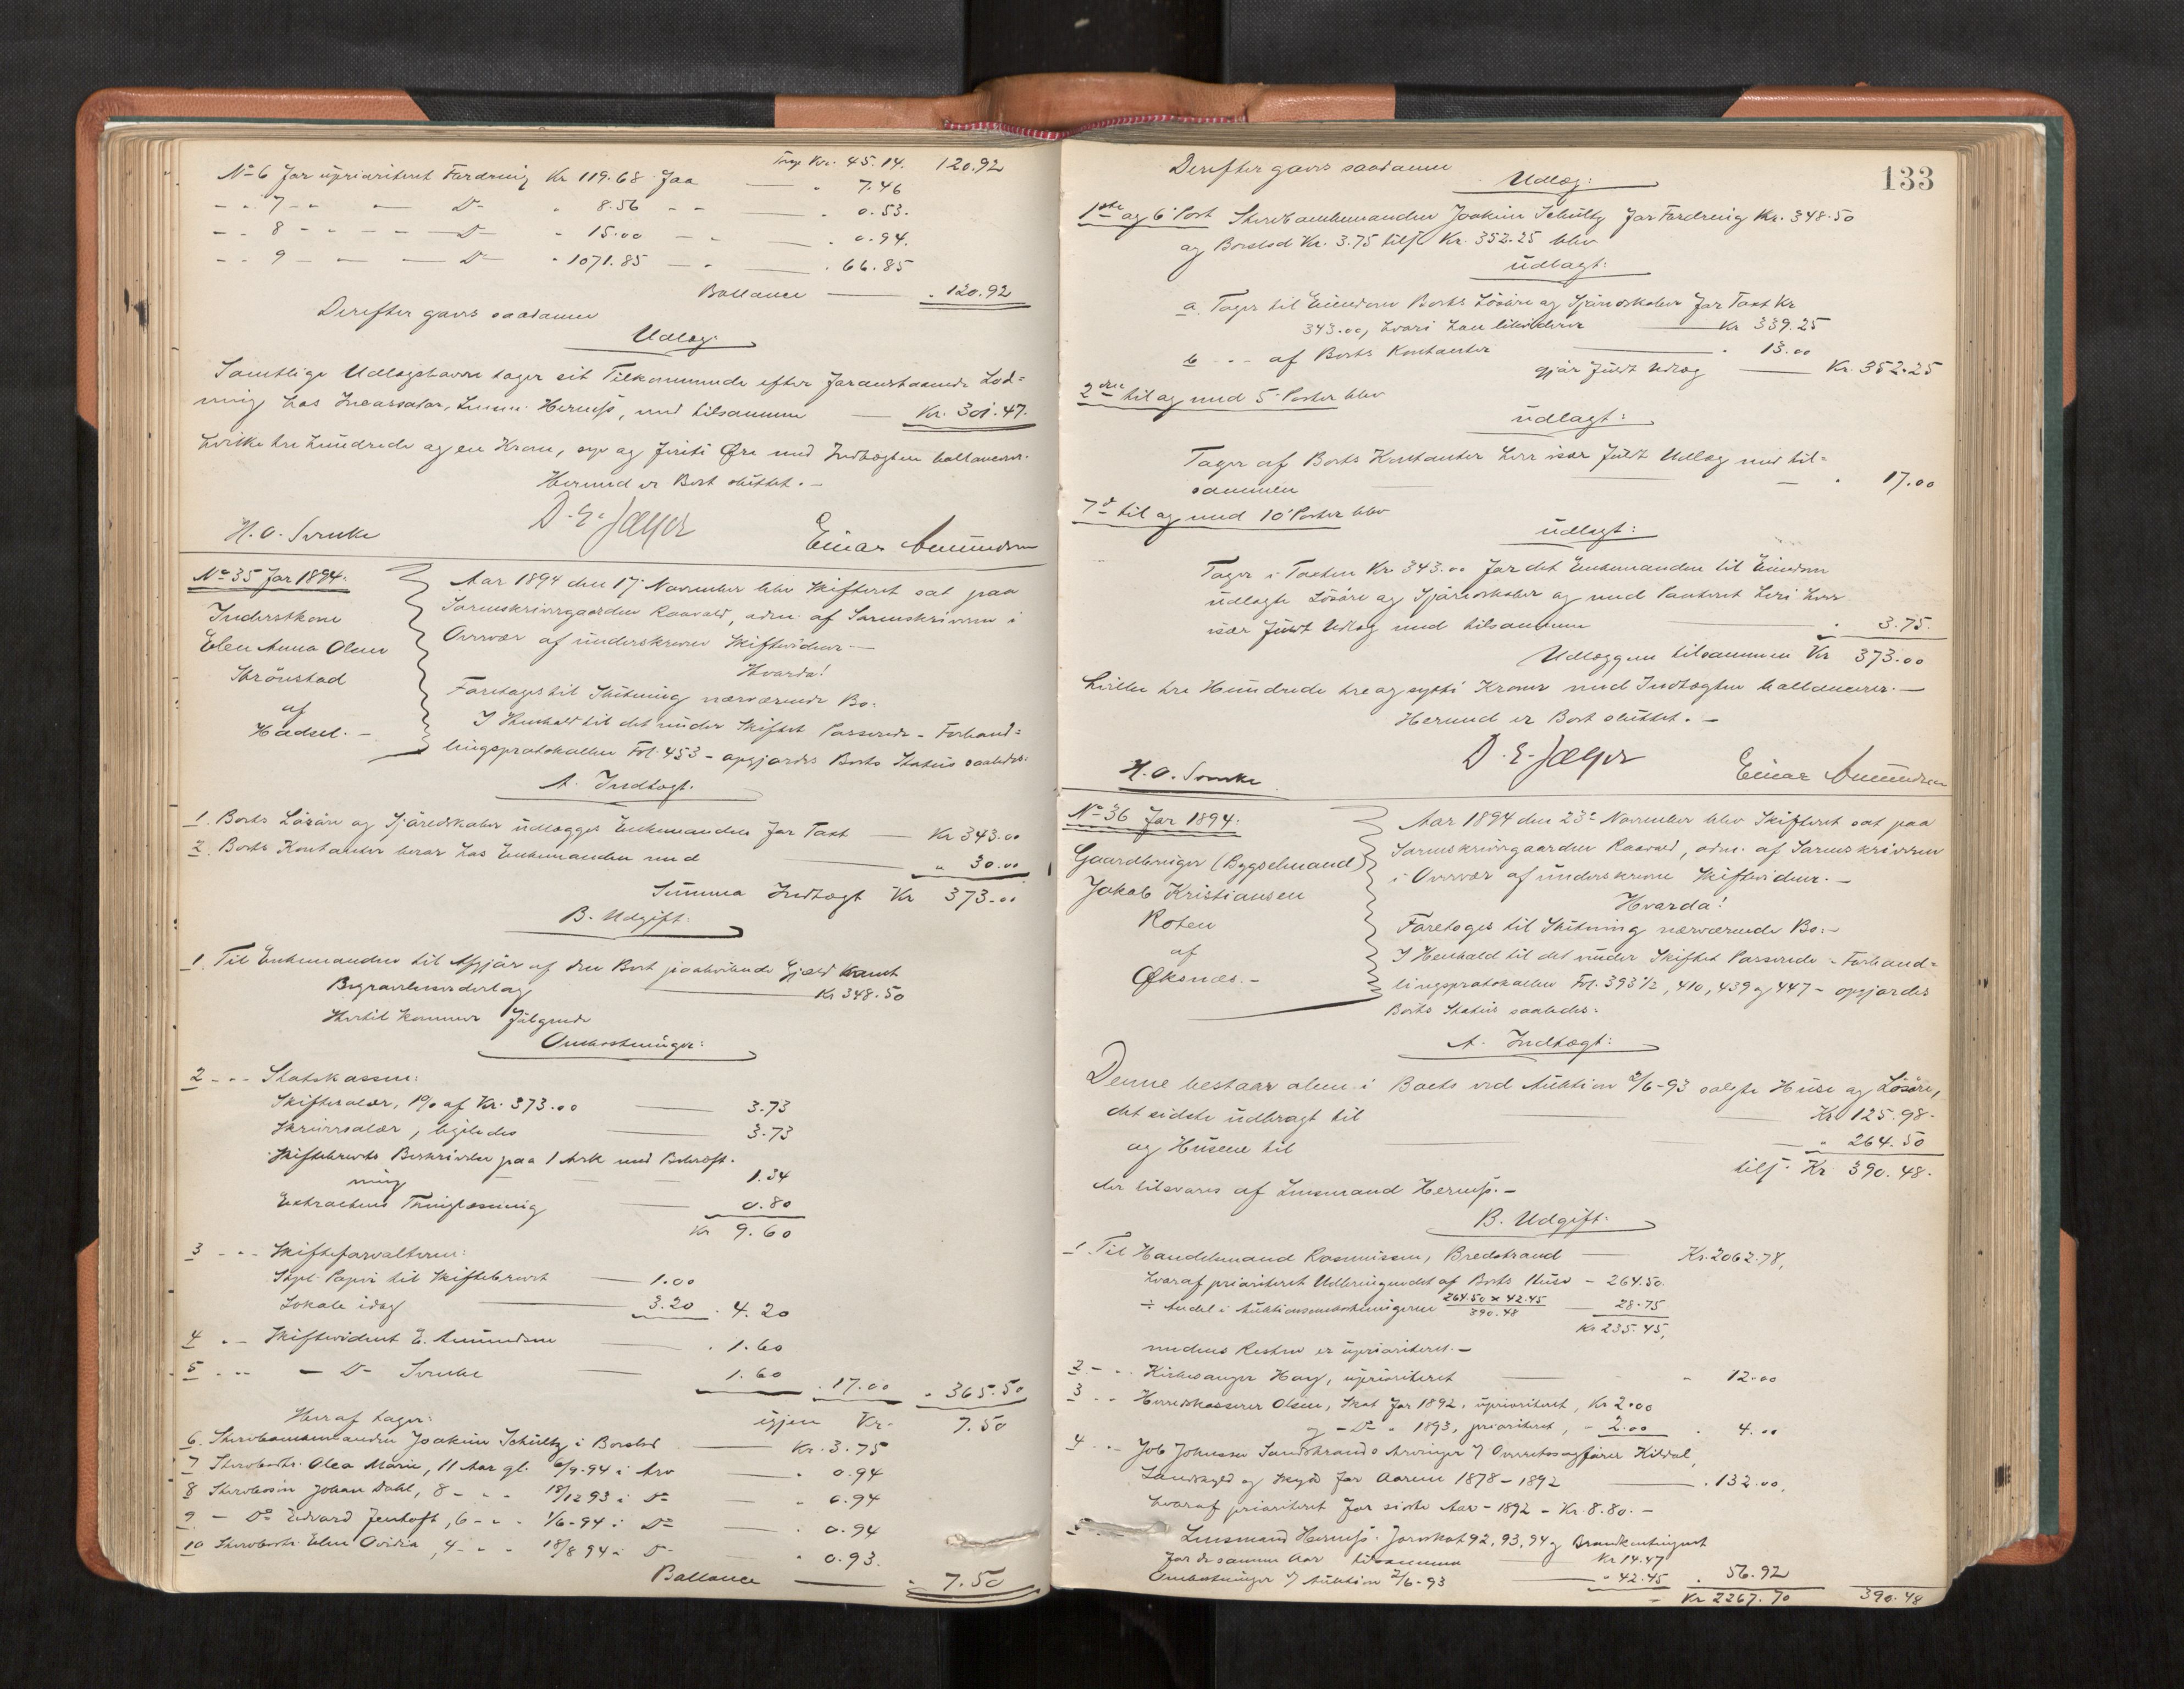 Trp. Kr. 45.14. 120.92
No 6 for uprioriteret Fordring Kr 119.68 faa — " 7.46
- " 7 - " — Do " 8.56 - - — " 0.53.
- - 8 - - - - Do - 15.00 — - — " 0.94.
- - 9 - — — Do " 1071.85 — " — " 66.85
Ballance — " 120.92
Derefter gaves saadanne
Udlæg:
Samtlige Udlægshavere tager sit Tilkommende efter foranstaaende Lod=
ning hos Incassator, Lensm. , med tilsammen — Kr. 301.47.
hvilke tre hundrede og en Krone, syv og firti Øre med Indtægten ballancerer.
Hermed er Boet sluttet. —
D. E. Jæger
H. O. Einar Amundsen
No 35 for 1894.
Inderstkone
Elen Anna Olsen
Strönstad
af
Hadsel. —
Aar 1894 den 17. November blev Skifteret sat paa
Sorenskrivergaarden Raavald, adm. af Sorenskriveren i
Overvær af underskrevne Skiftevidner. —
Hvorda!
Foretoges til Slutning nærværende Bo.
I Henhold til det under Skiftet Passerede - Forhand=
lingsprotokollen Fol. 453 - opgjordes Boets Status saaledes:
A. Indtægt.
1. Boets Lösöre og Sjöredskaber udlægges Enkemanden for Taxt — Kr 343.00
2. Boets Kontanter beror hos Enkemanden med — " 30.00
Summa Indtægt Kr 373.00
B. Udgift:
1. Til Enkemanden til Afgjör af den Boet paahvilende Gjæld samt
Begravelsesvederlag — Kr 348.50
Hertil kommer fölgende
Omkostninger:
2 - - - Statskassen:
Skiftesalær, 1% af Kr. 373.00 — 3.73
Skriversalær, ligeledes — 3.73
Skiftebrevets Beskrivelse paa 1 Ark med Bekræft-
ning — 1.34
Extractens Thinglæsning — 0.80
Kr 9.60
3 - - - Skifteforvalteren:
Stpl. Papir til Skiftebrevet — 1.00
Lokale idag — 3.20 . 4.20
4 - - Skiftevidnet E. Amundsen — . 1.60
5 - - - — Do — 1.60 . 17.00 " 365.50
Heraf tager: igjen Kr. 7.50
6. Sterbo­enkemanden Joakim Schultz i Boeslod — Kr. 3.75
7 Sterbodtr. Olea Marie, 11 Aar gl. 6/9-94 i Arv — " 0.94
8 Sterbosön Johan Dahl, 8 - - - 18/12 93 i Do — " 0.94
9 — Do Edvard Jentoft, 6 - - - 1/6-94 i Do — . 0.94
10 Sterbodtr. Elen Ovidia, 4 - - - 18/8 94 i Do — " 0.93.
Ballance — " 7.50
133
Derefter gaves saadanne
Udlæg:
1ste og 6' Post Sterboenkemanden Joakim Schultz for Fordring Kr. 348.50
og Boeslod Kr. 3.75 tils. Kr. 352.25 blev
udlagt:
a. Tager til Eiendom Boets Lösöre og Sjöredskaber for Taxt Kr
343.00, hvori han likviderer — Kr 339.25
b - - - af Boets Kontanter — " 13.00
gjör fuldt Udlæg — Kr. 352.25
2den til og med 5' Poster blev
udlagt:
Tager af Boets Kontanter hver især fuldt Udlæg med til=
sammen — " 17.00
7de til og med 10' Poster blev
udlagt:
Tager i Taxten Kr. 343.00 for det Enkemanden til Eiendom
udlagte Lösöre og Sjöredskaber og med Panteret heri hver
især fuldt Udlæg med tilsammen — " 3.75.
Udlæggene tilsammen Kr 373.00
hvilke tre Hundrede tre og sytti Kroner med Indtægten ballancerer. —
Hermed er Boet sluttet. —
D. E. Jæger
H. O. Einar Amundsen
No 36 for 1894.
Gaardbruger (Bygselmand)
Jakob Kristiansen
Roten
af
Øksnæs. —
Aar 1894 den 23' November blev Skifteret sat paa
Sorenskrivergaarden Raavald, adm. af Sorenskriveren
i Overvær af underskrevne Skiftevidner. —
Hvorda!
Foretoges til Slutning nærværende Bo. —
I Henhold til det under Skiftet Passerede - Forhand=
lingsprotokollen Fol. 393 1/2, 410, 439 og 447 - opgjordes
Boets Status saaledes:
A. Indtægt:
Denne bestaar alene i Boets ved Auktion 2/6-93 solgte Huse og Lösöre,
det sidste udbragt til — Kr. 125.98.
og Husene til — " 264.50
tils. Kr 390.48.
der tilsvares af Lensmand . —
B. Udgift:
1. Til Handelsmand Rasmussen, Bredstrand — Kr. 2062.78,
hvoraf prioriteret Udbringendet af Boets Huse - 264.50.
÷ Andel i Auktionsomkostningerne 264.50 x 42.45 / 390.48 — 28.75
Kr 235.45,
medens Resten er uprioriteret. —
2 - - - Kirkesanger Haug, uprioriteret — " 12.00
3 - - Herredskasserer Olsen, Skat for 1892, uprioriteret, Kr 2.00
og - Do " 1893, prioriteret, " 2.00 . 4.00
4 - - Job Johnsen Sandstrands Arvinger v/ Overretssagförer Kildal,
Landskyld og Skyds for Aarene 1878-1892 — . 132.00,
hvoraf prioriteret for sidste Aar - 1892 - Kr. 8.80. —
5 Lensmand . Jordskat 92, 93, 94 og Brandkontingent
for de samme Aar tilsammen — Kr 14.47
Omkostninger v/ Auktion 2/6-93 — " 42.45 . 56.92
— Kr 2267.70 390.48